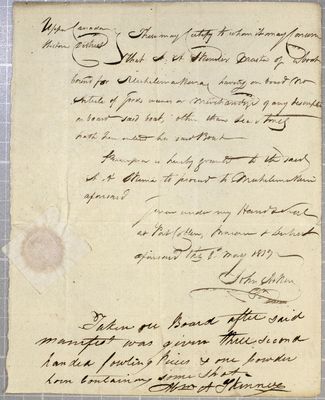 Upper Canada
Western District
These may Certify to whom it may Concern
that S. A. Skinner Master of a boat
bound for Michilimackinac having on board No
Article of goods wares or Merchandize of any description
on board said boat, other than Sea Stores
Permission is hereby granted to the said
S. A. Skinner to proceed to Michilimackinac
aforesaid
Given under my Hand & Seal
at Port
aforesaid this 8th May 1817
John Askin
Taken on Board after said
manifest was given three second
handed fowling Pieces & one powder
horn containing some shot
A Skinner